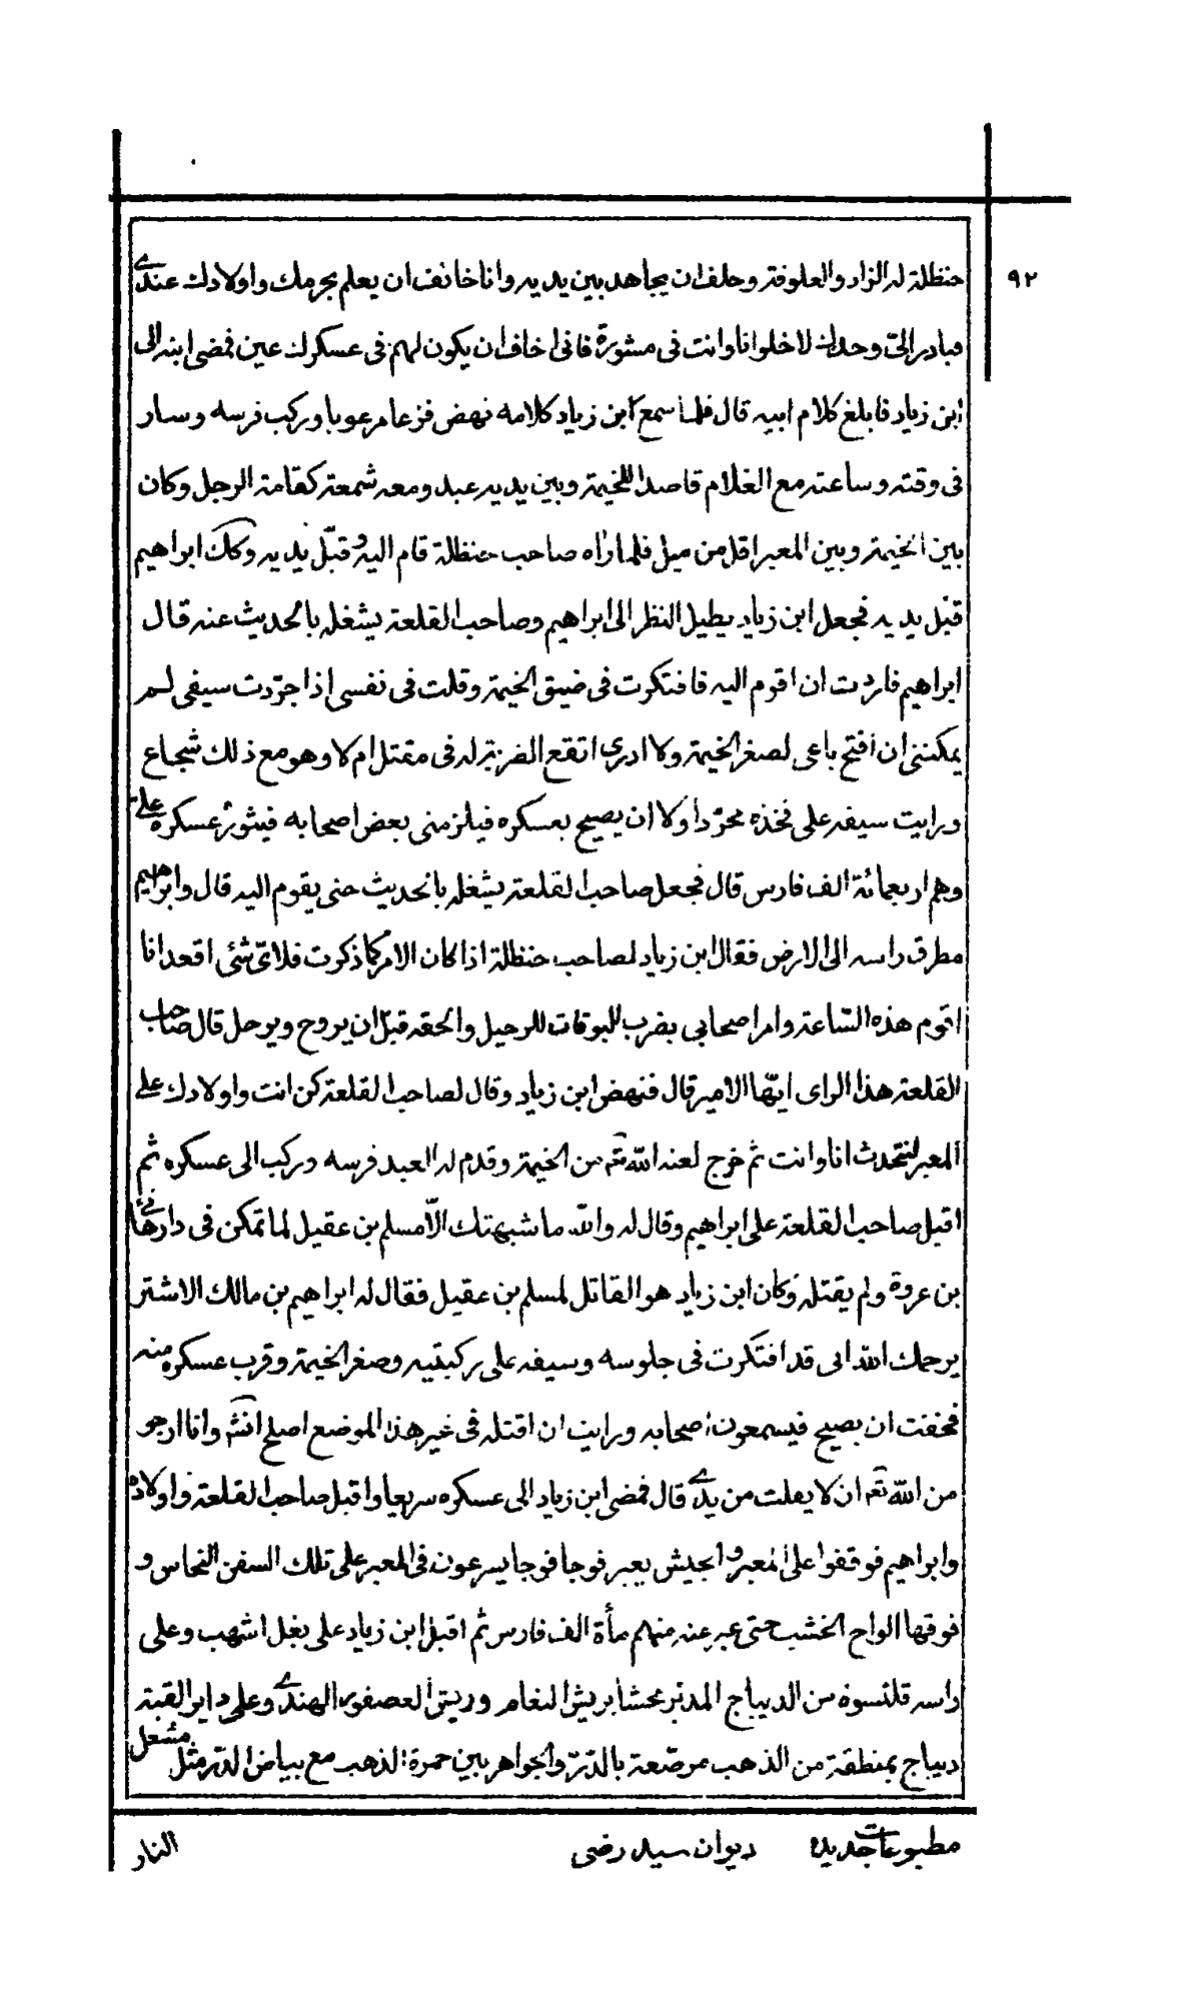 ٩٢
حنظلة له الزاد والعلوفة وحلف ان يجاهد بين يديه وانا خائف ان يعلم بجرمك واولادك عندى
فبادر الىّ وحدك لاخلوا نا وانت فى مشورة فانى اخاف ان يكون لهم فى عسكرك عين فمضى ابنه الى
ابن زياد فابلغ كلام ابيه قال فلما سمع ابن زياد كلامه نهض فزعا مرعوبا وركب فرسه وسار
فى وقته وساعته مع الغلام قاصدا للخيمة وبين يديه عبد ومعه شمعة كقامة الرجل وكان
بين الخيمة وبين المعبر اقل من ميل فلما راٰه صاحب حنظلة قام اليه وقبّل يديه وكك ابراهيم
قبّل يديه فجعل ابن زياد يطيل النظر الى ابراهيم وصاحب القلعة يشغله بالحديث عنه قال
ابراهيم فاردت ان اقوم اليه فافتكرت فى ضيق الخيمة وقلت فى نفسى اذا جرّدت سيفى لم
يمكننى ان افتح باعى لصغر الخيمة ولا ادرى اتقع الضربة له فى مقتل ام لا وهو مع ذلك شجاع
ورايت سيفه على فخذه مجرّدا ولا ان يصيح بعسكره فيلزمنى بعض اصحابه فيثور عسكره علىّ
وهم اربعمائة الف فارس قال فجعل صاحب القلعة يشغله بالحديث حتى يقوم اليه قال وابراهيم
مطرق راسه الى الارض فقال ابن زياد لصاحب حنظلة اذا كان الامر كما ذكرت فلاىّ شئى اقعد انا
اقوم هذه السّاعة وامر اصحابى بضرب البوقات للرحيل والحقه قبل ان يروح ويوحل قال صاحب
القلعة هذا الراى ايّها الامير قال فنهض ابن زياد وقال لصاحب القلعة كن انت واولادك على
المعبر لنتحدث انا وانت ثم خرج لعنه اللّٰه تعم من الخيمة وقدم له العبد فرسه وركب الى عسكره ثم
اقبل صاحب القلعة على ابراهيم وقال له واللّٰه ما شبهتك الّا مسلم بن عقيل لما تمكن فى دار هانى
بن عروة ولم يقتله وكان ابن زياد هو القاتل لمسلم بن عقيل فقال له ابراهيم بن مالك الاشتر
يرحمك اللّٰه انى قد افتكرت فى جلوسه وسيفه على ركبتيه وصغر الخيمة وقرب عسكره منه
فخفت ان يصيح فيسمعون اصحابه ورايت ان اقتله فى غير هذا الموضع اصلح انشٓ وانا ارجو
من اللّٰه تعم ان لا يفلت من يدى قال فمضى ابن زياد الى عسكره سريعا واقبل صاحب القلعة واولاده
وابراهيم فوقفوا على المعبر والجيش يعبر فوجا فوجا يسرعون فى المعبر على تلك السفن النحاس و
فوقها الواح الخشب حتى عبر عنه منهم مأة الف فارس ثم اقبل ابن زياد على بغل اشهب وعلى
راسه قلنسوة من الديباج المدبّر محشا بريش النعام وريش العصفور الهندى وعلى داير القبة
ديباج بمنطقة من الذهب مرصّعة بالدّرّ والجواهر بين حمرة الذهب مع بياض الدّر مثل مشعل
مطبوعات جديده ديوان سيد رضى النار